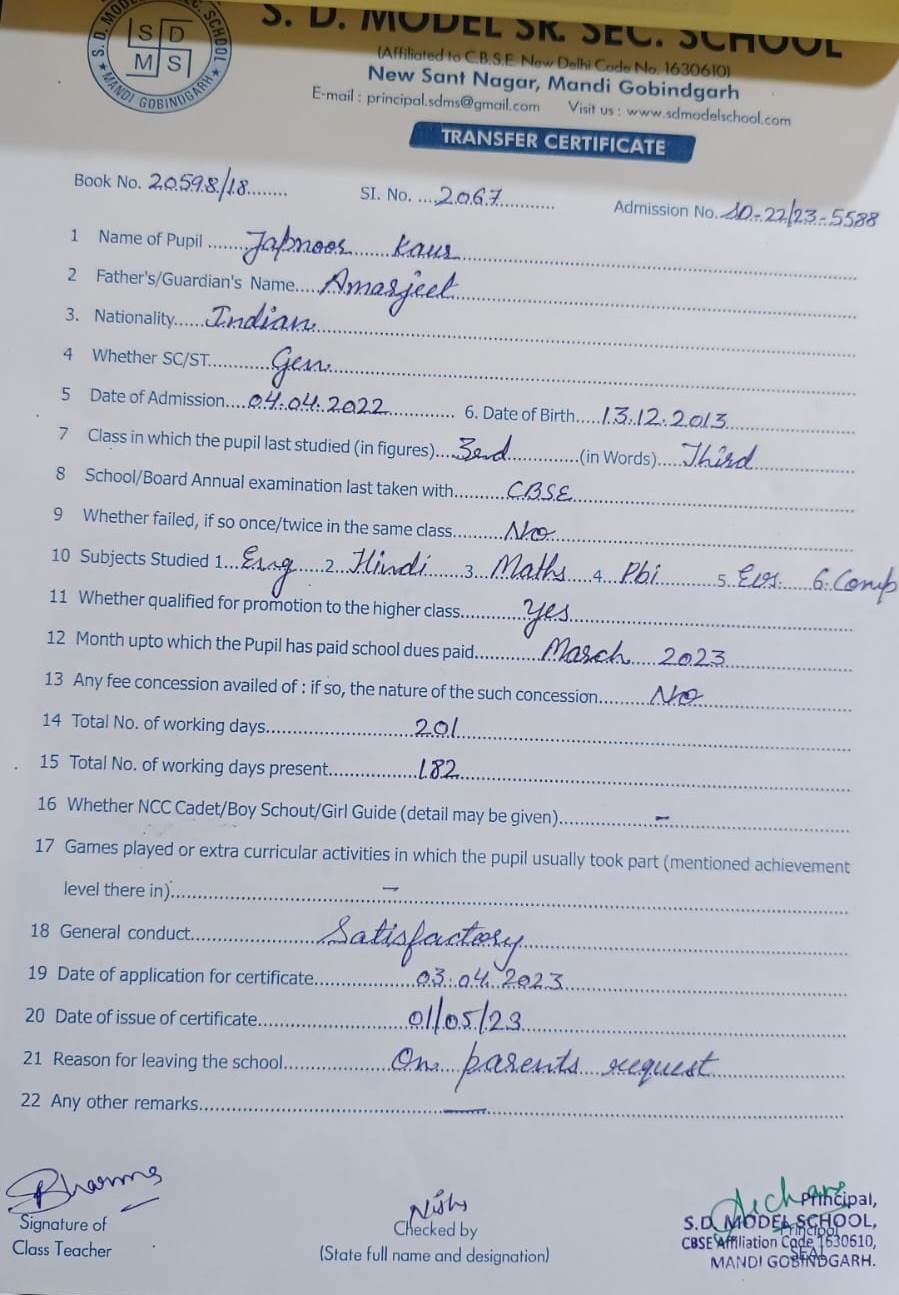 S. D. MODEL SR. SEC. SCHOOL
S D
M S
MANDI GOBINDGARH
(Affiliated to C.B.S.E. New Delhi Code No. 1630610)
New Sant Nagar, Mandi Gobindgarh
E-mail : principal.sdms@gmail.com Visit us : www.sdmodelschool.com
TRANSFER CERTIFICATE
Book No. 20598/18 SI. No. 2067 Admission No. 10-22/23-5588
1 Name of Pupil Japnoor Kaur
2 Father's/Guardian's Name Amarjeet
3. Nationality Indian
4 Whether SC/ST Gen
5 Date of Admission 04.04.2022 6. Date of Birth 13.12.2013
7 Class in which the pupil last studied (in figures) 3rd (in Words) Third
8 School/Board Annual examination last taken with CBSE
9 Whether failed, if so once/twice in the same class No
10 Subjects Studied 1 Eng 2 Hindi 3 Maths 4 Pbi 5 Evs 6. Comp
11 Whether qualified for promotion to the higher class yes
12 Month upto which the Pupil has paid school dues paid March 2023
13 Any fee concession availed of : if so, the nature of the such concession No
14 Total No. of working days 201
15 Total No. of working days present 182
16 Whether NCC Cadet/Boy Schout/Girl Guide (detail may be given) –
17 Games played or extra curricular activities in which the pupil usually took part (mentioned achievement
level there in) –
18 General conduct Satisfactory
19 Date of application for certificate 03.04.2023
20 Date of issue of certificate 01/05/23
21 Reason for leaving the school On parents request
22 Any other remarks —
Signature of
Class Teacher
Checked by
(State full name and designation)
Principal,
S.D. MODEL SCHOOL,
Principal
CBSE Affiliation Code 1630610,
SEAL
MANDI GOBINDGARH.